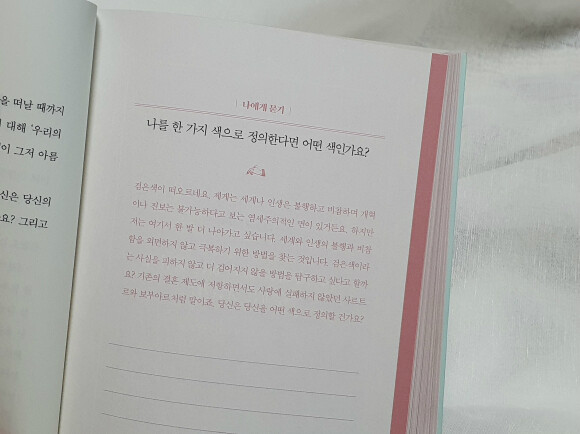 을 떠날 때까지
대해 '우리의
이 그저 아름
신은 당신의
요? 그리고
| 나에게 묻기 |
나를 한 가지 색으로 정의한다면 어떤 색인가요?
검은색이 떠오르네요. 세계는 세계나 인생은 불행하고 비참하며 개혁
이나 진보는 불가능하다고 보는 염세주의적인 면이 있거든요. 하지만
저는 여기서 한 발 더 나아가고 싶습니다. 세계와 인생의 불행과 비참
함을 외면하지 않고 극복하기 위한 방법을 찾는 것입니다. 검은색이라
는 사실을 피하지 않고 더 검어지지 않을 방법을 탐구하고 싶다고 할까
요? 기존의 결혼 제도에 저항하면서도 사랑에 실패하지 않았던 사르트
르와 보부아르처럼 말이죠. 당신은 당신을 어떤 색으로 정의할 건가요?